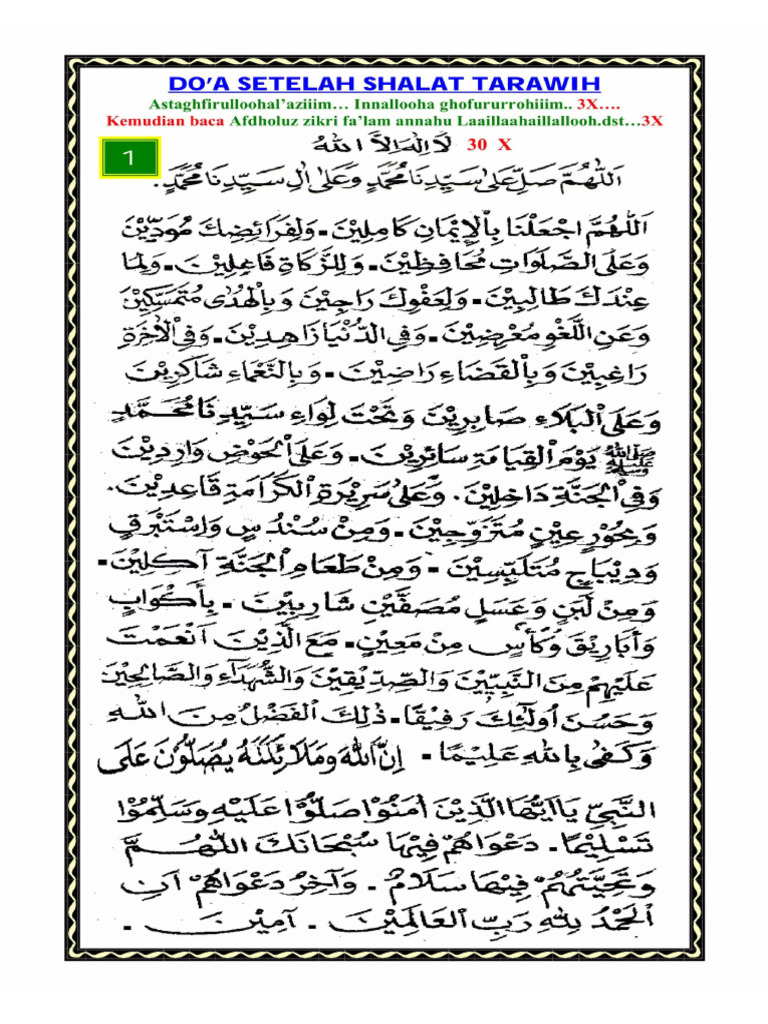 DO'A SETELAH SHALAT TARAWIH
Astaghfirulloohal'aziiim… Innallooha ghofururrohiiim.. 3X….
Kemudian baca Afdholuz zikri fa'lam annahu Laaillaahaillallooh.dst…3X
لَا اِلٰهَ اِلَّا اللهُ 30 X
1
اَللّٰهُمَّ صَلِّ عَلٰى سَيِّدِنَا مُحَمَّدٍ وَعَلٰى اٰلِ سَيِّدِنَا مُحَمَّدٍ.
اَللّٰهُمَّ اجْعَلْنَا بِالْاِيْمَانِ كَامِلِيْنَ - وَلِفَرَائِضِكَ مُؤَدِّيْنَ
وَعَلَى الصَّلَوَاتِ مُحَافِظِيْنَ - وَلِلزَّكَاةِ فَاعِلِيْنَ - وَلِمَا
عِنْدَكَ طَالِبِيْنَ - وَلِعَفْوِكَ رَاجِيْنَ وَبِالْهُدٰى مُتَمَسِّكِيْنَ
وَعَنِ اللَّغْوِ مُعْرِضِيْنَ - وَفِي الدُّنْيَا زَاهِدِيْنَ - وَفِي الْاٰخِرَةِ
رَاغِبِيْنَ وَبِالْقَضَاءِ رَاضِيْنَ - وَبِالنَّعْمَاءِ شَاكِرِيْنَ
وَعَلَى الْبَلَاءِ صَابِرِيْنَ وَتَحْتَ لِوَاءِ سَيِّدِنَا مُحَمَّدٍ
ﷺ يَوْمَ الْقِيَامَةِ سَائِرِيْنَ - وَعَلَى الْحَوْضِ وَارِدِيْنَ
وَفِي الْجَنَّةِ دَاخِلِيْنَ. وَعَلٰى سَرِيْرَةِ الْكَرَامَةِ قَاعِدِيْنَ.
وَبِحُوْرٍ عِيْنٍ مُتَزَوِّجِيْنَ - وَمِنْ سُنْدُسٍ وَاِسْتَبْرَقٍ
وَدِيْبَاجٍ مُتَلَبِّسِيْنَ - وَمِنْ طَعَامِ الْجَنَّةِ آكِلِيْنَ -
وَمِنْ لَبَنٍ وَعَسَلٍ مُصَفَّيْنِ شَارِبِيْنَ - بِأَكْوَابٍ
وَأَبَارِيْقَ وَكَأْسٍ مِنْ مَعِيْنٍ - مَعَ الَّذِيْنَ اَنْعَمْتَ
عَلَيْهِمْ مِنَ النَّبِيِّيْنَ وَالصِّدِّيْقِيْنَ وَالشُّهَدَاءِ وَالصَّالِحِيْنَ
وَحَسُنَ اُولٰئِكَ رَفِيْقًا - ذٰلِكَ الْفَضْلُ مِنَ اللهِ
وَكَفٰى بِاللهِ عَلِيْمًا - اِنَّ اللهَ وَمَلَائِكَتَهُ يُصَلُّوْنَ عَلَى
النَّبِيِّ يَااَيُّهَا الَّذِيْنَ اٰمَنُوْا صَلُّوْا عَلَيْهِ وَسَلِّمُوْا
تَسْلِيْمًا - دَعْوَاهُمْ فِيْهَا سُبْحَانَكَ اللّٰهُمَّ
وَتَحِيَّتُهُمْ فِيْهَا سَلَامٌ - وَآخِرُ دَعْوَاهُمْ اَنِ
الْحَمْدُ لِلهِ رَبِّ الْعَالَمِيْنَ - آمِيْنَ -